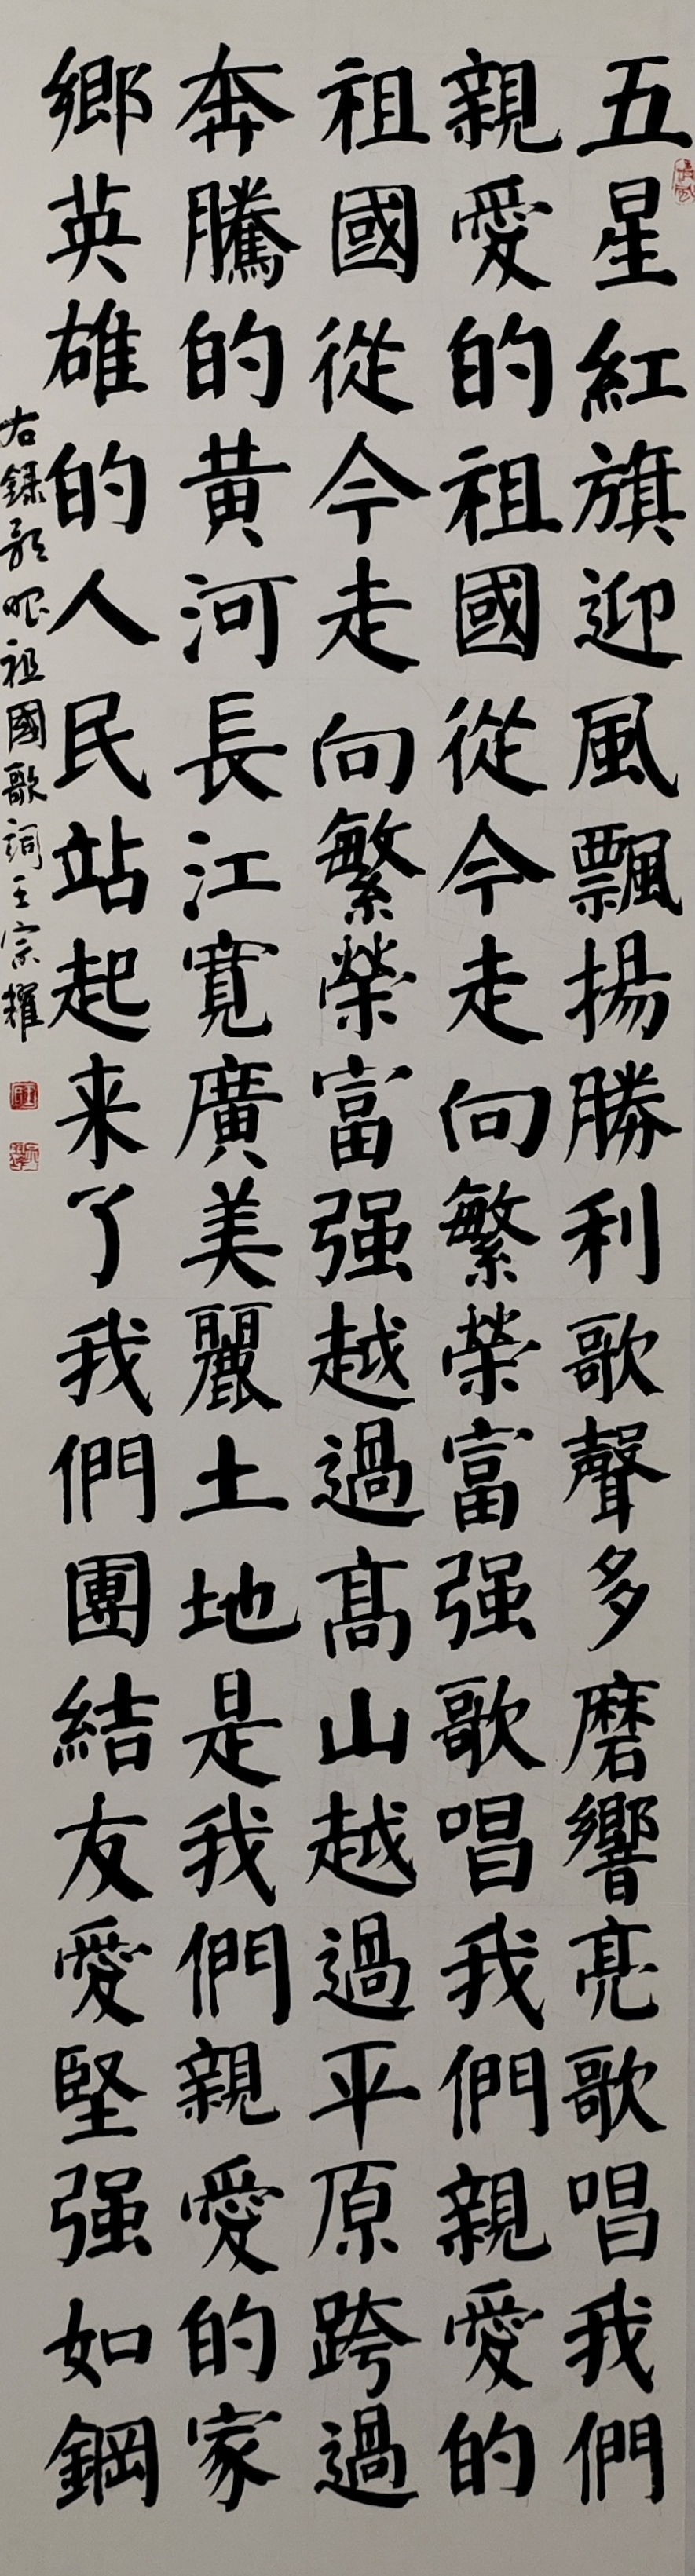 五星紅旗迎風飄揚勝利歌聲多麿響亮歌唱我們
親愛的祖國從今走向繁榮富强歌唱我們親愛的
祖國從今走向繁榮富强越過高山越過平原跨過
奔騰的黄河長江寬廣美麗土地是我們親愛的家
鄉英雄的人民站起来了我們團結友愛堅强如鋼
右録歌唱祖國歌詞王宗耀